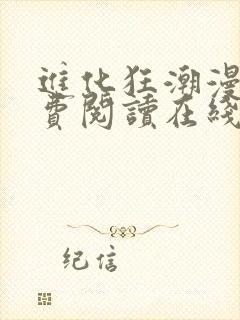 進化狂潮漫
費閱讀在綫
纪信